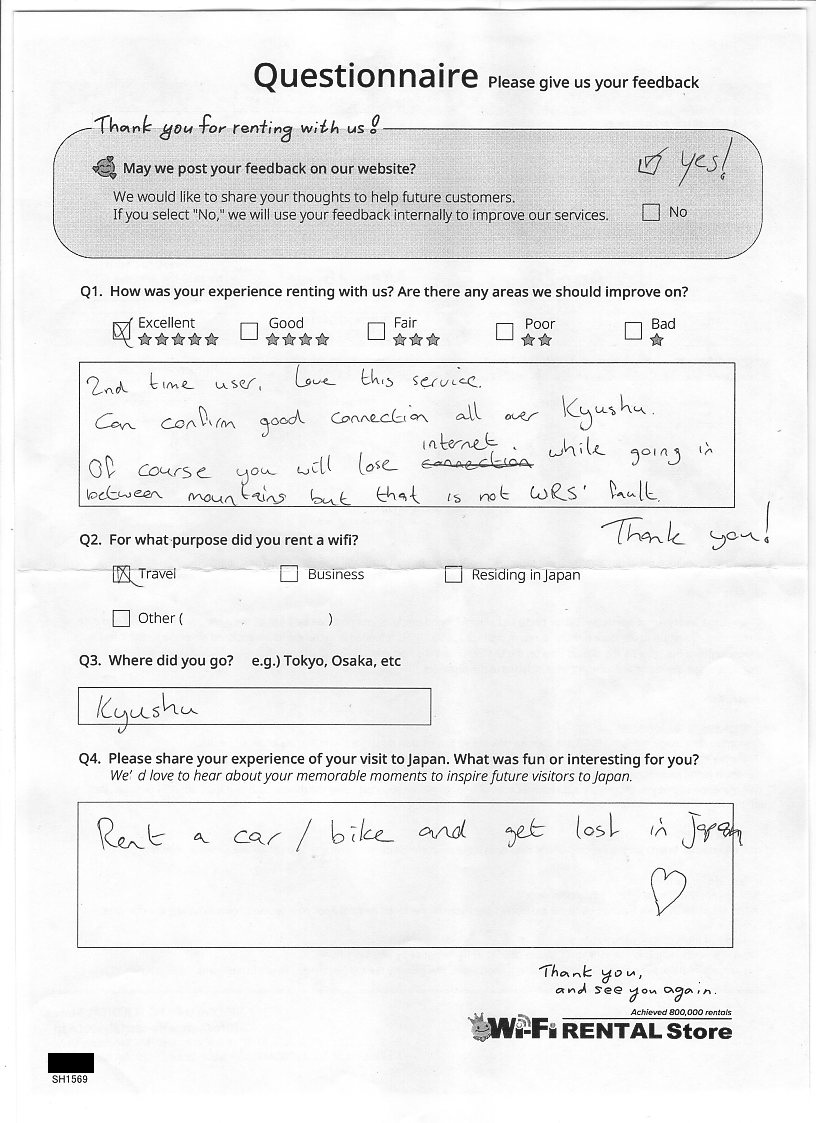 Questionnaire Please give us your feedback
Thank you for renting with us!
May we post your feedback on our website?
Yes!
We would like to share your thoughts to help future customers.
If you select "No," we will use your feedback internally to improve our services.
No
Q1. How was your experience renting with us? Are there any areas we should improve on?
Excellent Good Fair Poor Bad
2nd time user. Love this service.
Can confirm good connection all over Kyushu.
Of course you will lose connection internet while going in
between mountains but that is not WRS' fault.
Thank you!
Q2. For what purpose did you rent a wifi?
Travel Business Residing in Japan
Other ( )
Q3. Where did you go? e.g.) Tokyo, Osaka, etc
Kyushu
Q4. Please share your experience of your visit to Japan. What was fun or interesting for you?
We'd love to hear about your memorable moments to inspire future visitors to Japan.
Rent a car / bike and get lost in Japan
Thank you,
and see you again.
Achieved 800,000 rentals
Wi-Fi RENTAL Store
SH1569